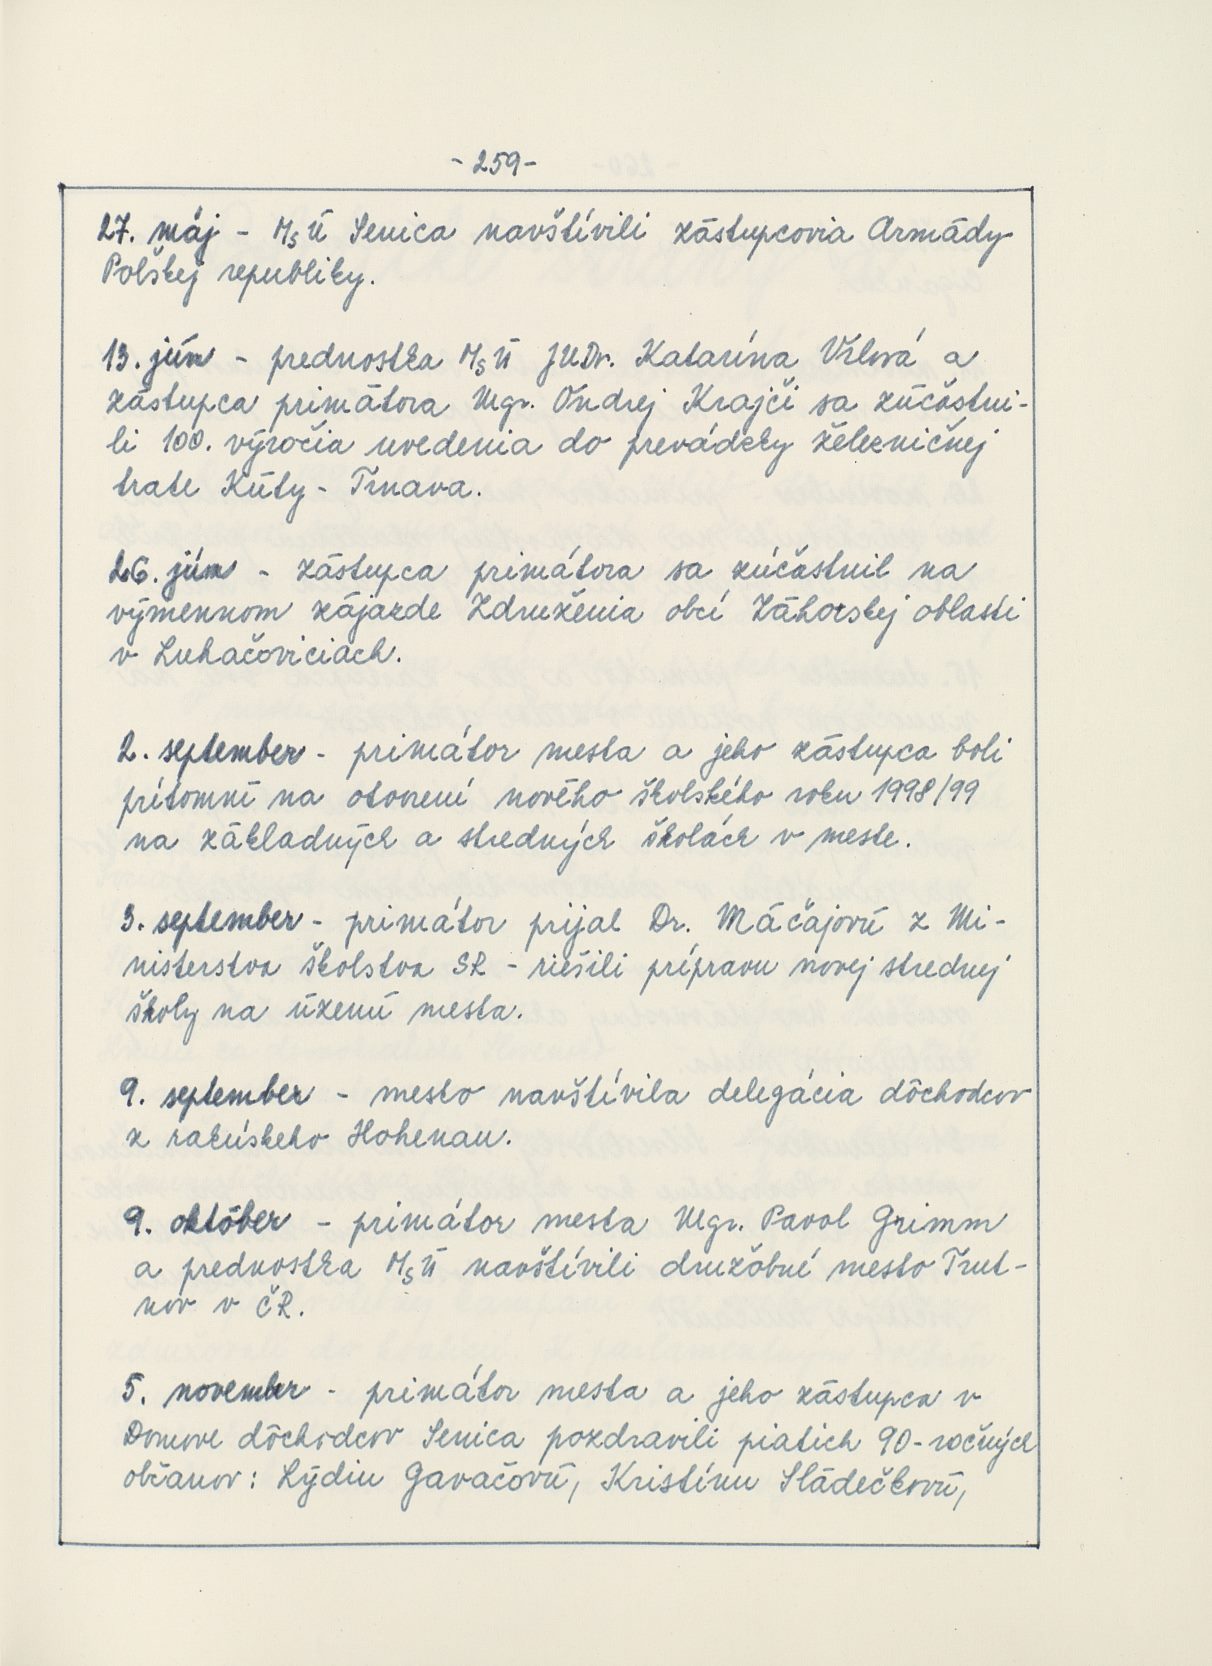 - 259 -
27. máj - MsÚ Senica navštívili zástupcovia Armády
Poľskej republiky.
13. jún - prednostka MsÚ JUDr. Katarína Vrlová a
zástupca primátora Mgr. Ondrej Krajči sa zúčastni-
li 100. výročia uvedenia do prevádzky železničnej
trate Kúty - Trnava.
26. jún - zástupca primátora sa zúčastnil na
výmennom zájazde Združenia obcí Záhorskej oblasti
v Luhačoviciach.
2. september - primátor mesta a jeho zástupca boli
prítomní na otvorení nového školského roku 1998/99
na základných a stredných školách v meste.
3. september - primátor prijal Dr. Máčajovú z Mi-
nisterstva školstva SR - riešili prípravu novej strednej
školy na území mesta.
9. september - mesto navštívila delegácia dôchodcov
z rakúskeho Hohenau.
9. október - primátor mesta Mgr. Pavol Grimm
a prednostka MsÚ navštívili družobné mesto Trut-
nov v ČR.
5. november - primátor mesta a jeho zástupca v
Domove dôchodcov Senica pozdravili piatich 90-ročných
občanov: Lýdiu Gavačovú, Kristínu Sládečkovú,